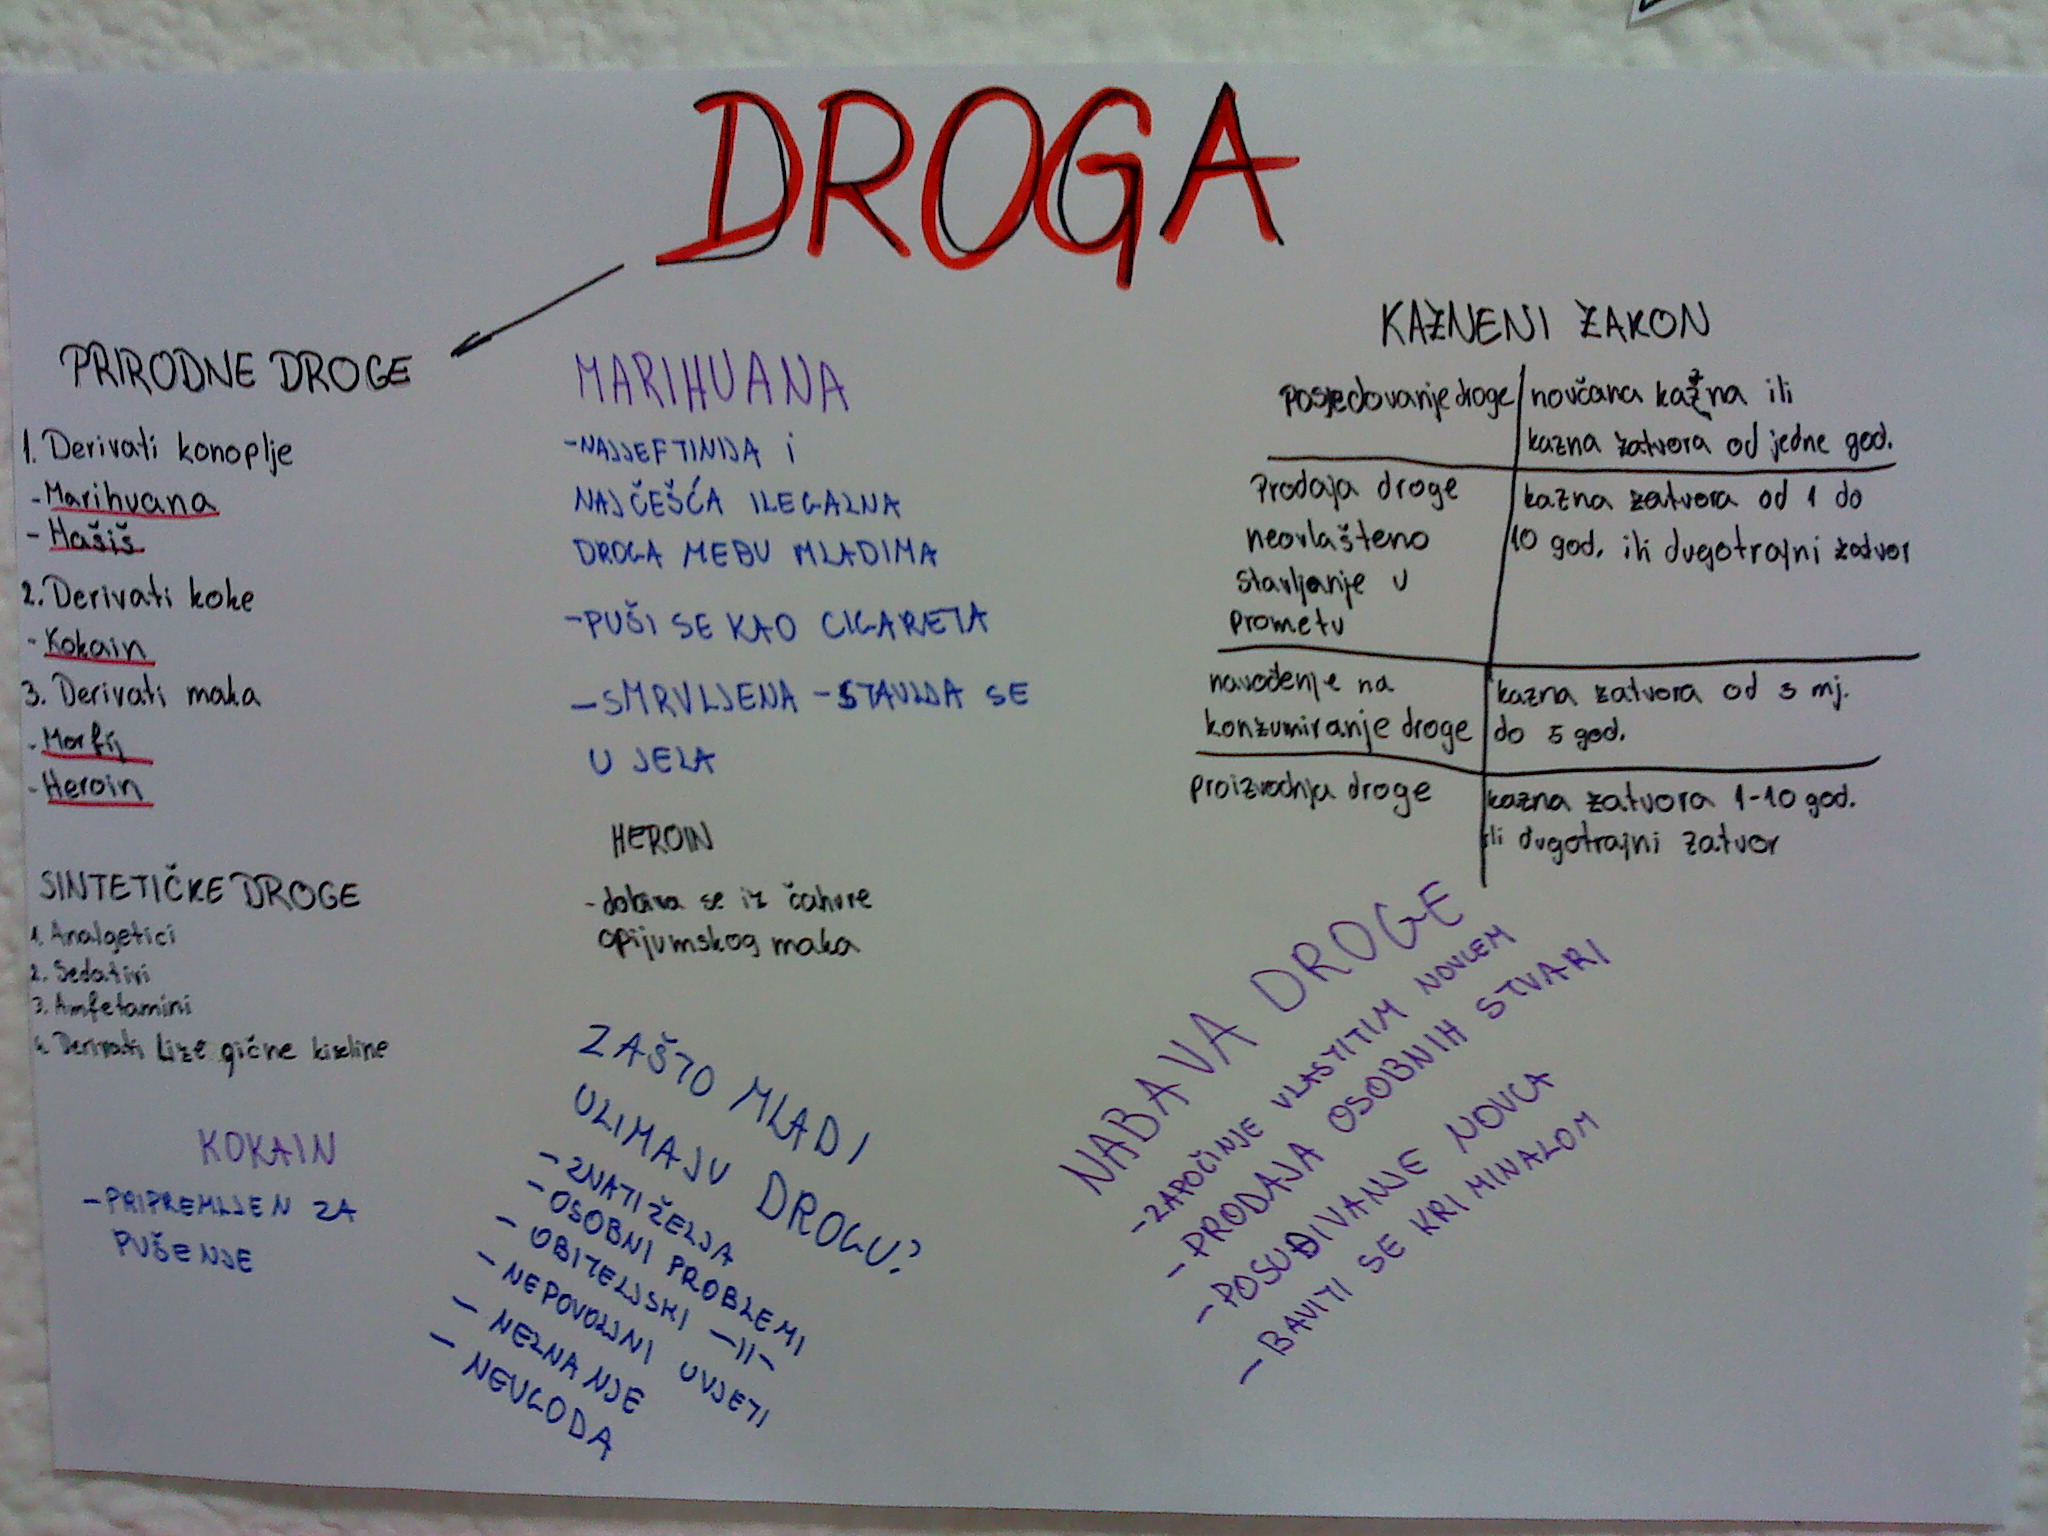 DROGA
PRIRODNE DROGE
1. Derivati konoplje
- Marihuana
- Hašiš
2. Derivati koke
- Kokain
3. Derivati maka
- Morfij
- Heroin
SINTETIČKE DROGE
1. Analgetici
2. Sedativi
3. Amfetamini
4. Derivati Lize gične kiseline
KOKAIN
- PRIPREMLJEN ZA
PUŠENJE
MARIHUANA
- NAJJEFTINIJA i
NAJČEŠĆA ILEGALNA
DROGA MEĐU MLADIMA
- PUŠI SE KAO CIGARETA
- SMRVLJENA - STAVLJA SE
U JELA
HEROIN
- dobiva se iz čahure
opijumskog maka
ZAŠTO MLADI
UZIMAJU DROGU?
- ZNATIŽELJA
- OSOBNI PROBLEMI
- OBITELJSKI -II-
- NEPOVOLJNI UVJETI
- NEZNANJE
- NEUGODA
KAZNENI ZAKON
posjedovanje droge novčana kazna ili
kazna zatvora od jedne god.
Prodaja droge kazna zatvora od 1 do
neovlašteno 10 god. ili dugotrajni zatvor
stavljanje u
prometu
navođenje na kazna zatvora od 3 mj.
konzumiranje droge do 5 god.
proizvodnja droge kazna zatvora 1-10 god.
ili dugotrajni zatvor
NABAVA DROGE
- ZAPOČINJE VLASTITIM NOVCEM
- PRODAJA OSOBNIH STVARI
- POSUĐIVANJE NOVCA
- BAVITI SE KRIMINALOM